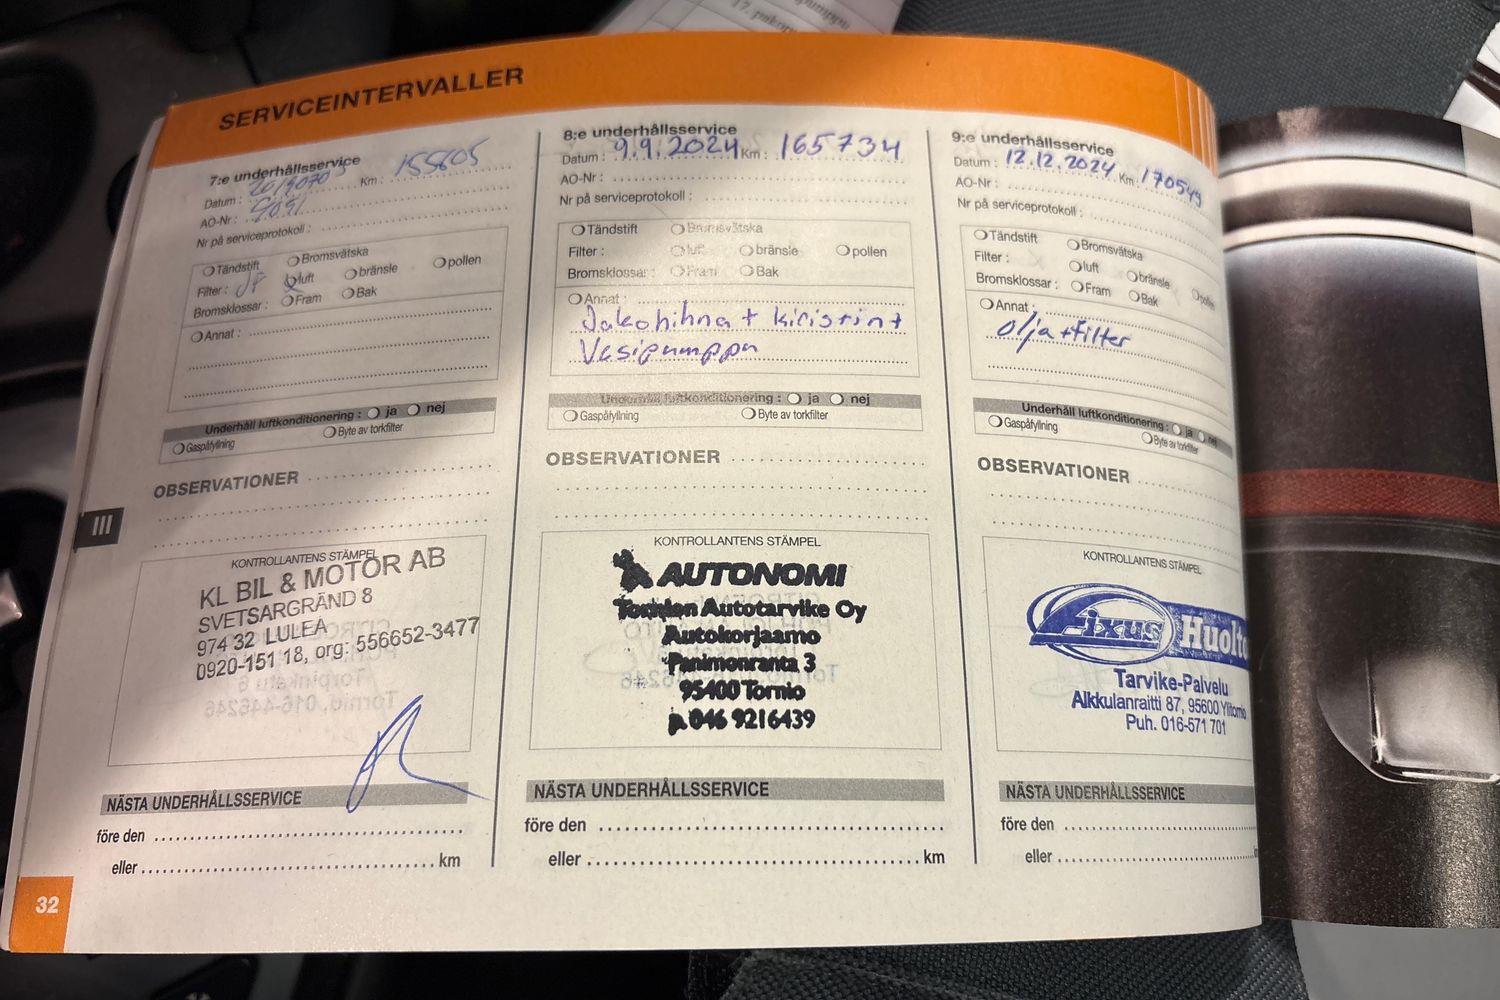 SERVICEINTERVALLER
7:e underhållsservice
Datum : Km : 155805
AO-Nr :
Nr på serviceprotokoll :
Tändstift Bromsvätska
Filter : luft bränsle pollen
Bromsklossar : Fram Bak
Annat :
Underhåll luftkonditionering : ja nej
Gaspåfyllning Byte av torkfilter
OBSERVATIONER
KONTROLLANTENS STÄMPEL
KL BIL & MOTOR AB
SVETSARGRÄND 8
974 32 LULEA
0920-151 18, org: 556652-3477
NÄSTA UNDERHÅLLSSERVICE
före den
eller km
8:e underhållsservice
Datum : 9.9.2024 Km : 165734
AO-Nr :
Nr på serviceprotokoll :
Tändstift Bromsvätska
Filter : luft bränsle pollen
Bromsklossar : Fram Bak
Annat :
Jakohihna + kiristin +
Vesipumppu
Underhåll luftkonditionering : ja nej
Gaspåfyllning Byte av torkfilter
OBSERVATIONER
KONTROLLANTENS STÄMPEL
AUTONOMI
Tornion Autotarvike Oy
Autokorjaamo
Panimonranta 3
95400 Tornio
p. 046 9216439
NÄSTA UNDERHÅLLSSERVICE
före den
eller km
9:e underhållsservice
Datum : 12.12.2024 Km 170549
AO-Nr :
Nr på serviceprotokoll :
Tändstift Bromsvätska
Filter : luft bränsle pollen
Bromsklossar : Fram Bak
Annat :
olja + filter
Underhåll luftkonditionering : ja nej
Gaspåfyllning Byte av torkfilter
OBSERVATIONER
KONTROLLANTENS STÄMPEL
Fixus Huolto
Tarvike-Palvelu
Alkkulanraitti 87, 95600 Ylitornio
Puh. 016-571 701
NÄSTA UNDERHÅLLSSERVICE
före den
eller
III
32